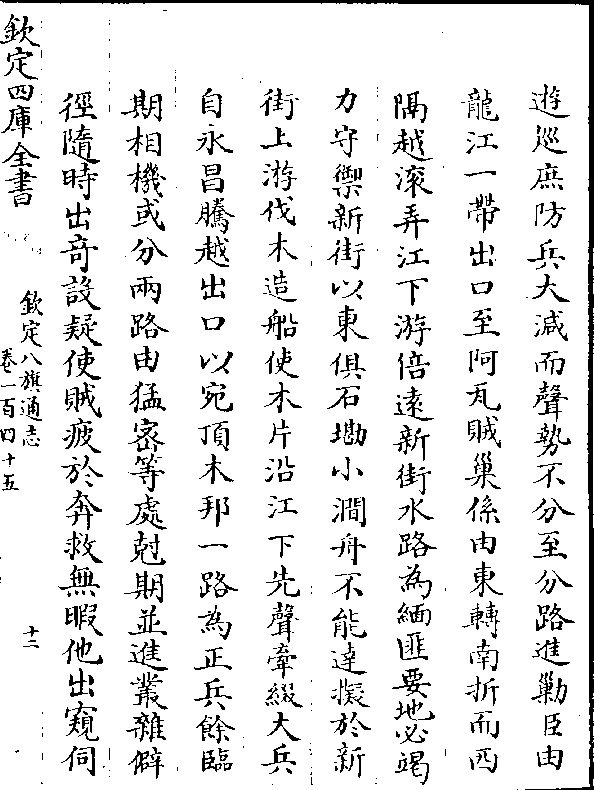 遊廵庶防兵大減而聲勢不分至分路進勦臣由
龍江一帶出口至阿瓦賊巢係由東轉南折而西
隔越滾弄江下游倍遠新街水路為緬匪要地必竭
力守禦新街以東俱石磡小澗舟不能達擬於新
街上游伐木造船使木片沿江下先聲牽綴大兵
自永昌騰越出口以宛頂木邦一路為正兵餘臨
期相機或分兩路由猛宻等處尅期並進叢雜僻
徑隨時出奇設疑使賊疲於奔救無暇他出窺伺
欽定四庫全書
欽定八旗通志
卷一百四十五
十二